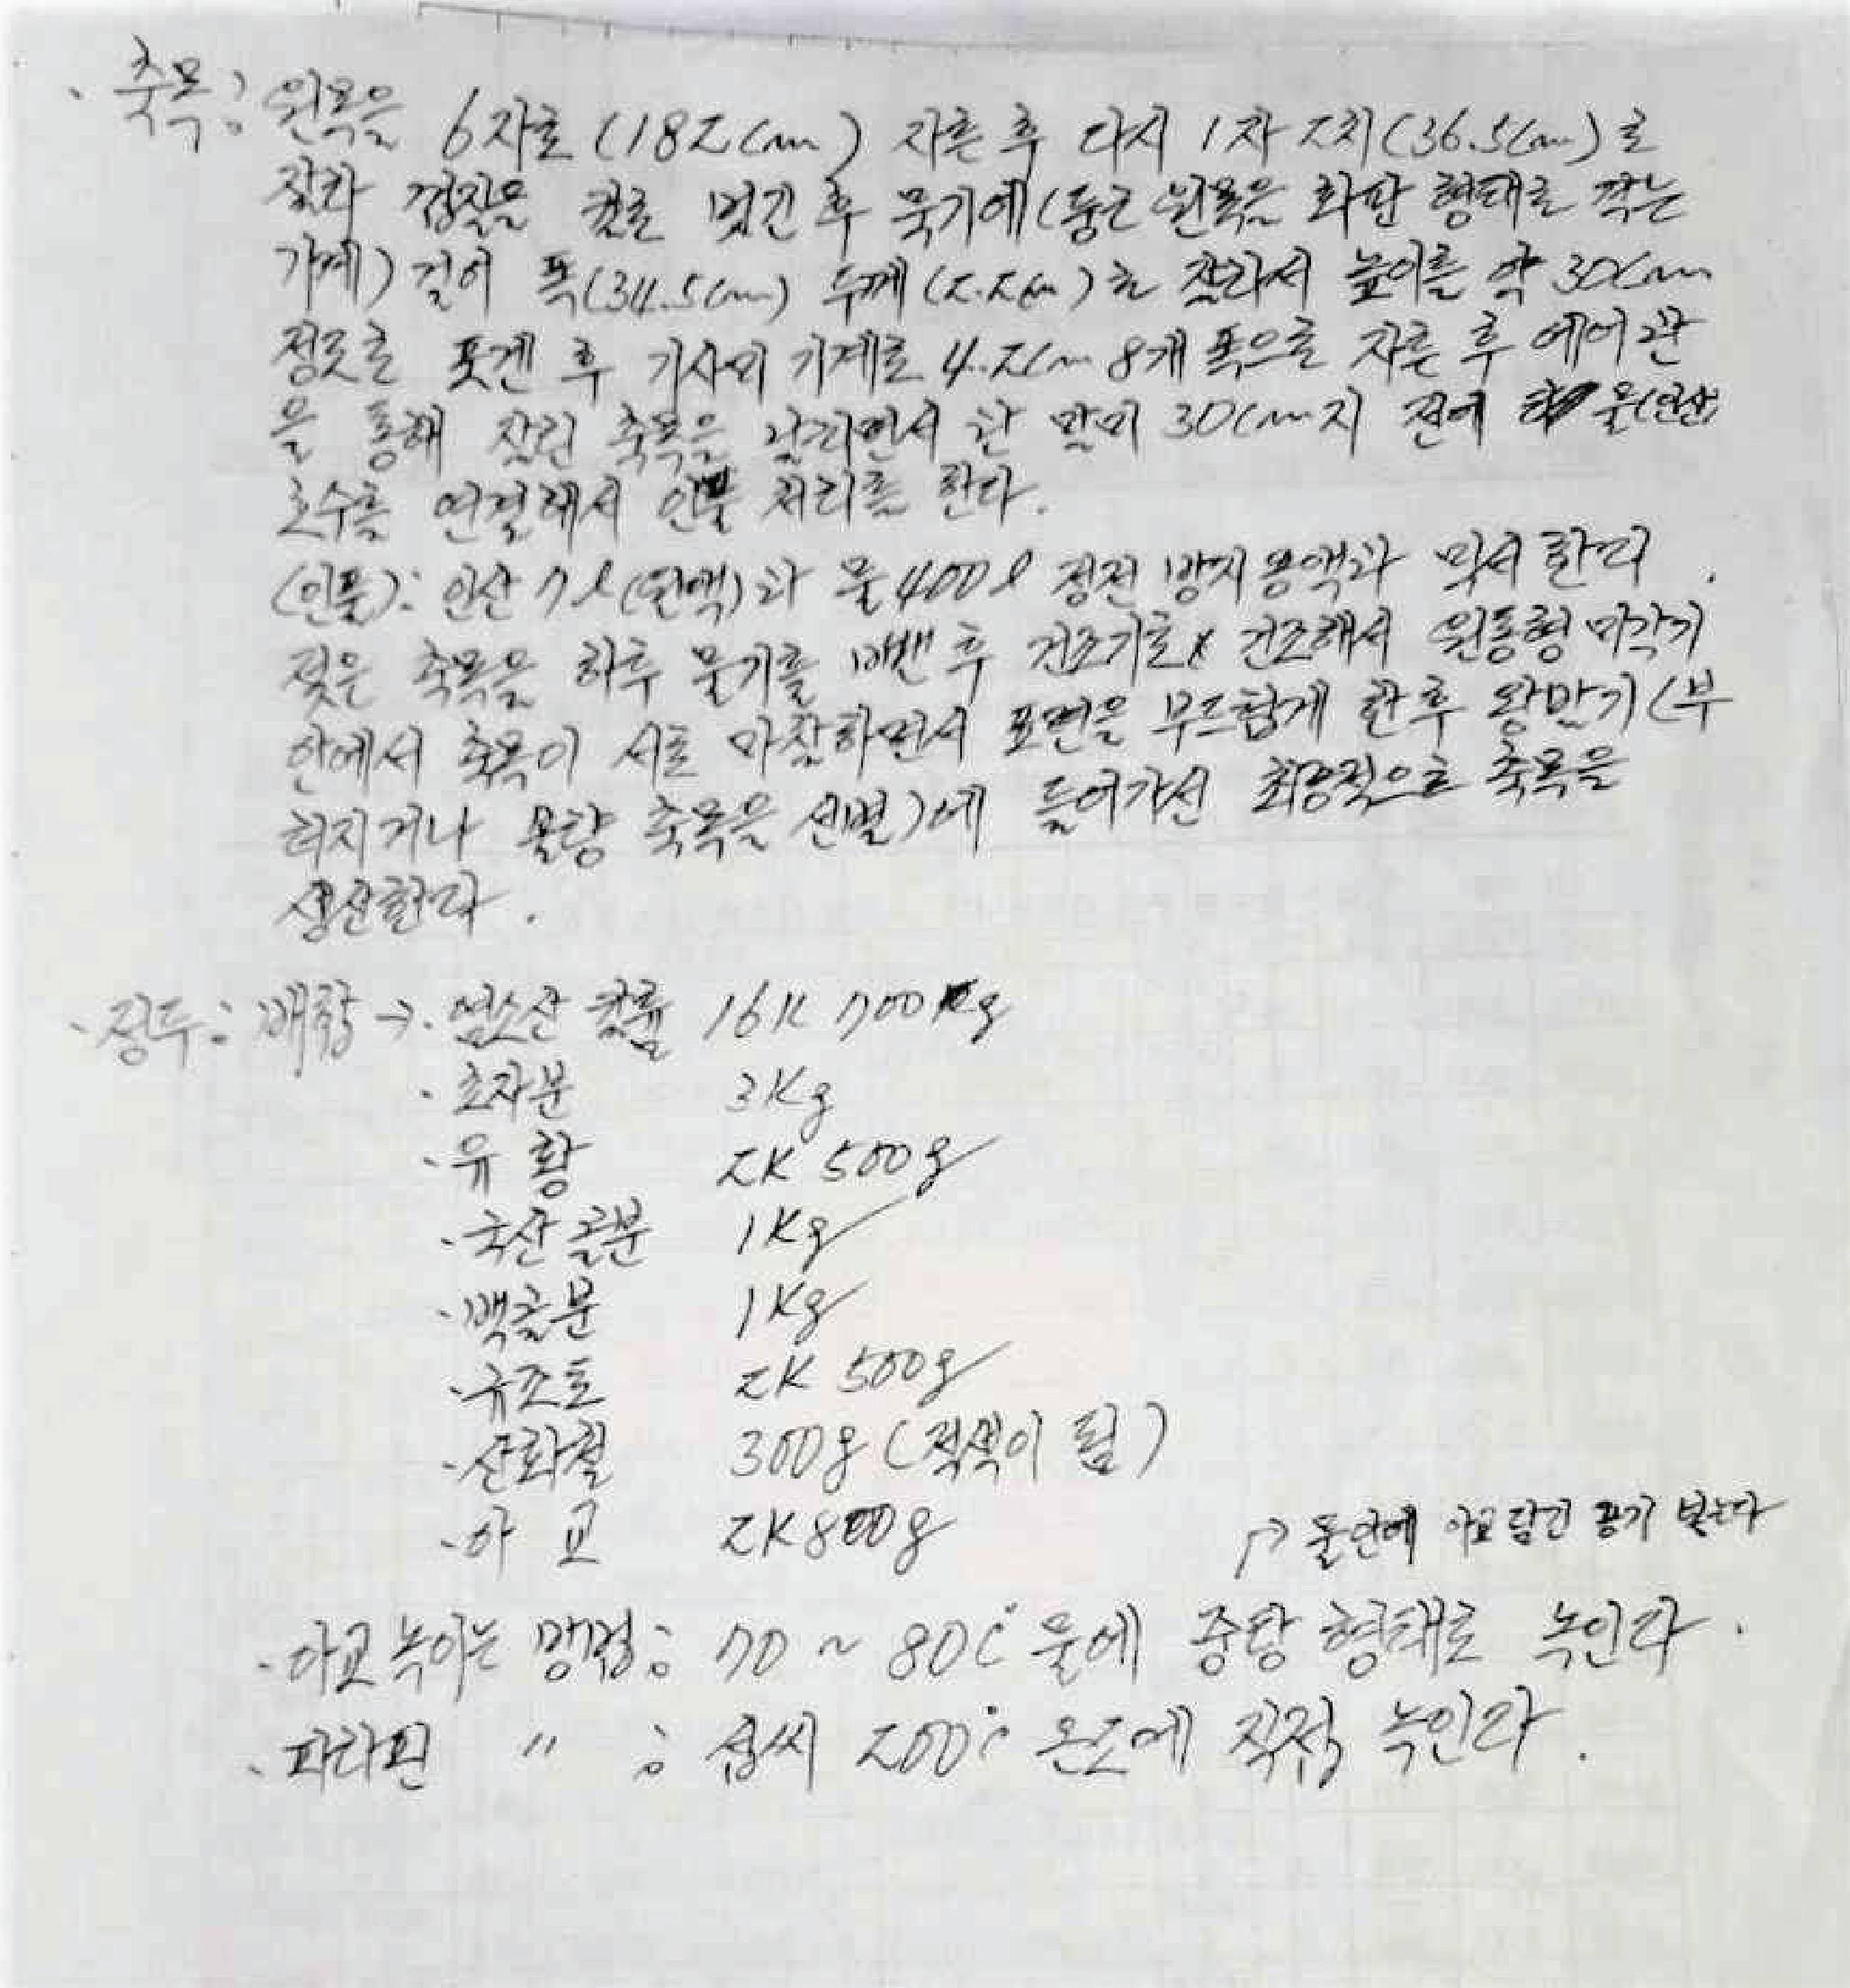 · 축목; 원목을 6자로 (182cm) 자른 후 다시 1자 2치(36.5cm)로
잘라 껍질을 벗긴 후 묵기에(둥근 원목을 화판 형태로 깍는
기계) 걸어 폭(34.5cm) 두께(2.2cm)로 잘라서 높이를 약 30cm
정도로 폿겐 후 기사미 기계로 4.2cm 8개 폭으로 자른 후 에어관
을 통해 잘린 축목을 날리면서 관 말미 30cm지 전에 물(인산)
호수를 연결해서 인물 처리를 한다.
(인물): 인산 7ℓ(원액)과 물 400ℓ 정전 방지 용액과 믹서 한다.
젖은 축목을 하루 물기를 뺀 후 건조기로 건조해서 원통형 마각기
안에서 축목이 서로 마찰하면서 표면을 부드럽게 한 후 왕만기(부
러지거나 불량 축목을 선별)에 들어가선 최종적으로 축목을
생산한다.
· 정두: 배합 → · 염소산 16K 700Kg
· 초자분 3Kg
· 유 황 2K 500g
· 국산골분 1Kg
· 백골분 1Kg
· 규조토 2K 500g
· 산화철 300g (적색이 됨)
· 아 교 2K800g
↱ 물 안에 아교 담긴 용기 넣는다
· 아교 녹이는 방법; 70 ~ 80℃ 물에 중탕 형태로 녹인다.
· 파라핀 〃 ; 섭씨 200℃ 온도에 직접 녹인다.